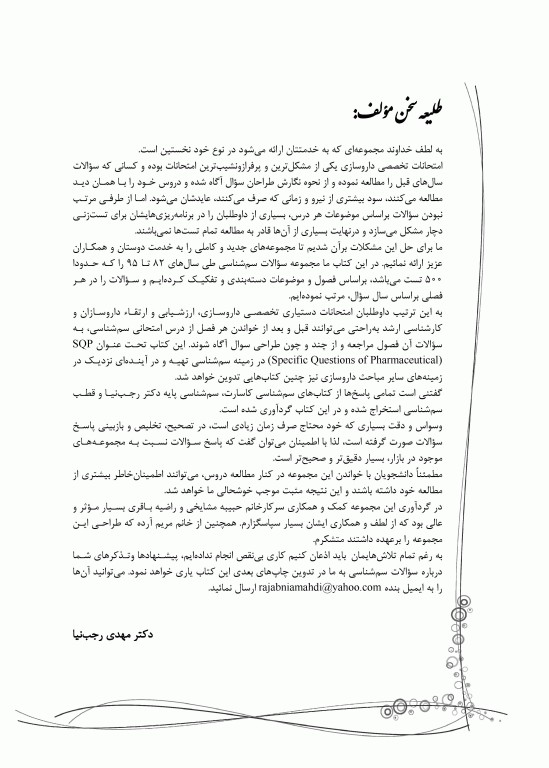 طلیعه سخن مؤلف:
به لطف خداوند مجموعه‌ای که به خدمتتان ارائه می‌شود در نوع خود نخستین است.
امتحانات تخصصی داروسازی یکی از مشکل‌ترین و پرفرازونشیب‌ترین امتحانات بوده و کسانی که سؤالات
سال‌های قبل را مطالعه نموده و از نحوه نگارش طراحان سؤال آگاه شده و دروس خود را با همان دید
مطالعه می‌کنند، سود بیشتری از نیرو و زمانی که صرف می‌کنند، عایدشان می‌شود. اما از طرفی مرتب
نبودن سؤالات براساس موضوعات هر درس، بسیاری از داوطلبان را در برنامه‌ریزی‌هایشان برای تست‌زنی
دچار مشکل می‌سازد و درنهایت بسیاری از آن‌ها قادر به مطالعه تمام تست‌ها نمی‌باشند.
ما برای حل این مشکلات برآن شدیم تا مجموعه‌های جدید و کاملی را به خدمت دوستان و همکاران
عزیز ارائه نمائیم. در این کتاب ما مجموعه سؤالات سم‌شناسی طی سال‌های ۸۲ تا ۹۵ را که حدودا
۵۰۰ تست می‌باشد، براساس فصول و موضوعات دسته‌بندی و تفکیک کرده‌ایم و سؤالات را در هر
فصلی براساس سال سؤال، مرتب نموده‌ایم.
به این ترتیب داوطلبان امتحانات دستیاری تخصصی داروسازی، ارزشیابی و ارتقاء داروسازان و
کارشناسی ارشد به‌راحتی می‌توانند قبل و بعد از خواندن هر فصل از درس امتحانی سم‌شناسی، به
سؤالات آن فصول مراجعه و از چند و چون طراحی سوال آگاه شوند. این کتاب تحت عنوان SQP
(Specific Questions of Pharmaceutical) در زمینه سم‌شناسی تهیه و در آینده‌ای نزدیک در
زمینه‌های سایر مباحث داروسازی نیز چنین کتاب‌هایی تدوین خواهد شد.
گفتنی است تمامی پاسخ‌ها از کتاب‌های سم‌شناسی کاسارت، سم‌شناسی پایه دکتر رجب‌نیا و قطب
سم‌شناسی استخراج شده و در این کتاب گردآوری شده است.
وسواس و دقت بسیاری که خود محتاج صرف زمان زیادی است، در تصحیح، تخلیص و بازبینی پاسخ
سؤالات صورت گرفته است، لذا با اطمینان می‌توان گفت که پاسخ سؤالات نسبت به مجموعه‌های
موجود در بازار، بسیار دقیق‌تر و صحیح‌تر است.
مطمئناً دانشجویان با خواندن این مجموعه در کنار مطالعه دروس، می‌توانند اطمینان‌خاطر بیشتری از
مطالعه خود داشته باشند و این نتیجه مثبت موجب خوشحالی ما خواهد شد.
در گردآوری این مجموعه کمک و همکاری سرکارخانم حبیبه مشایخی و راضیه باقری بسیار مؤثر و
عالی بود که از لطف و همکاری ایشان بسیار سپاسگزارم. همچنین از خانم مریم آرده که طراحی این
مجموعه را برعهده داشتند متشکرم.
به رغم تمام تلاش‌هایمان باید اذعان کنیم کاری بی‌نقص انجام نداده‌ایم، پیشنهادها وتذکرهای شما
درباره سؤالات سم‌شناسی به ما در تدوین چاپ‌های بعدی این کتاب یاری خواهد نمود. می‌توانید آن‌ها
را به ایمیل بنده rajabniamahdi@yahoo.com ارسال نمائید.
دکتر مهدی رجب‌نیا